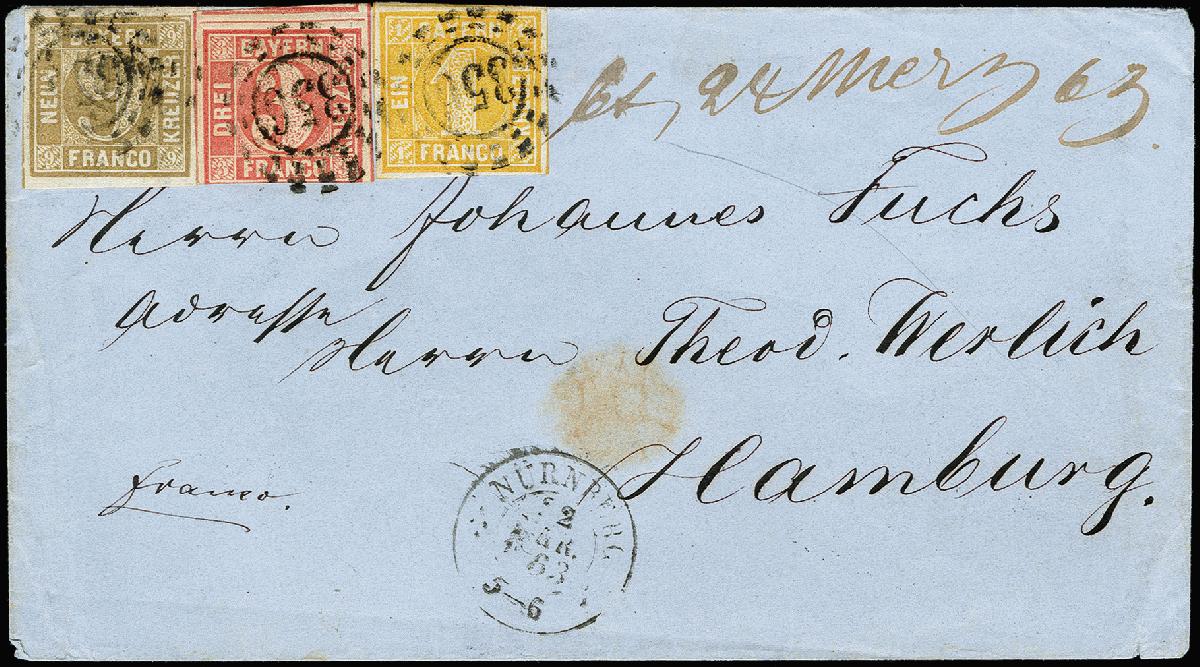 BAYERN
NEUN
KREUZER
FRANCO
9 9
BAYERN
DREI
FRANCO
BAYERN
EIN
1 1
FRANCO
356
24 Merz 63
Herrn Johannes Fuchs
Adresse
Herrn Theod. Werlich
Hamburg.
Franco.
NÜRNBERG
2
MÄR.
63
5–6